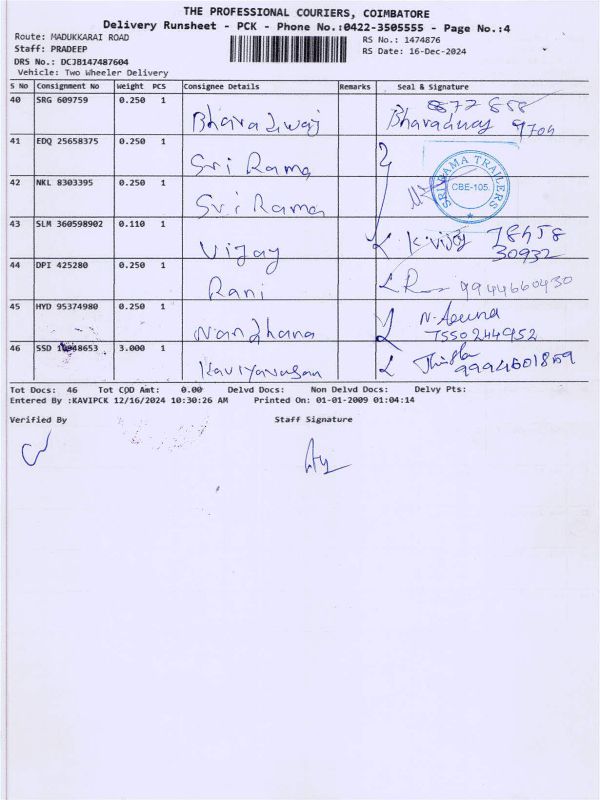 THE PROFESSIONAL COURIERS, COIMBATORE
Delivery Runsheet - PCK - Phone No.:0422-3505555 - Page No.:4
Route: MADUKKARAI ROAD
RS No.: 1474876
Staff: PRADEEP
RS Date: 16-Dec-2024
DRS No.: DCJB147487604
Vehicle: Two Wheeler Delivery
S No Consignment No Weight PCS Consignee Details Remarks Seal & Signature
40 SRG 609759 0.250 1 Bharadwaj 8877 858
Bharadwaj 9704
41 EDQ 25658375 0.250 1 Sri Rama
SRI RAMA TRAILERS
CBE-105.
42 NKL 8303395 0.250 1 Sri Rama
43 SLM 360598902 0.110 1 Vijay K. Vijay 78458
30932
44 DPI 425280 0.250 1 Rani 9944660430
45 HYD 95374980 0.250 1 Nandhana N. Aruna
7550244952
46 SSD 3.000 1 Kaviyarasan
9994601869
Tot Docs: 46 Tot COD Amt: 0.00 Delvd Docs: Non Delvd Docs: Delvy Pts:
Entered By :KAVIPCK 12/16/2024 10:30:26 AM Printed On: 01-01-2009 01:04:14
Verified By Staff Signature